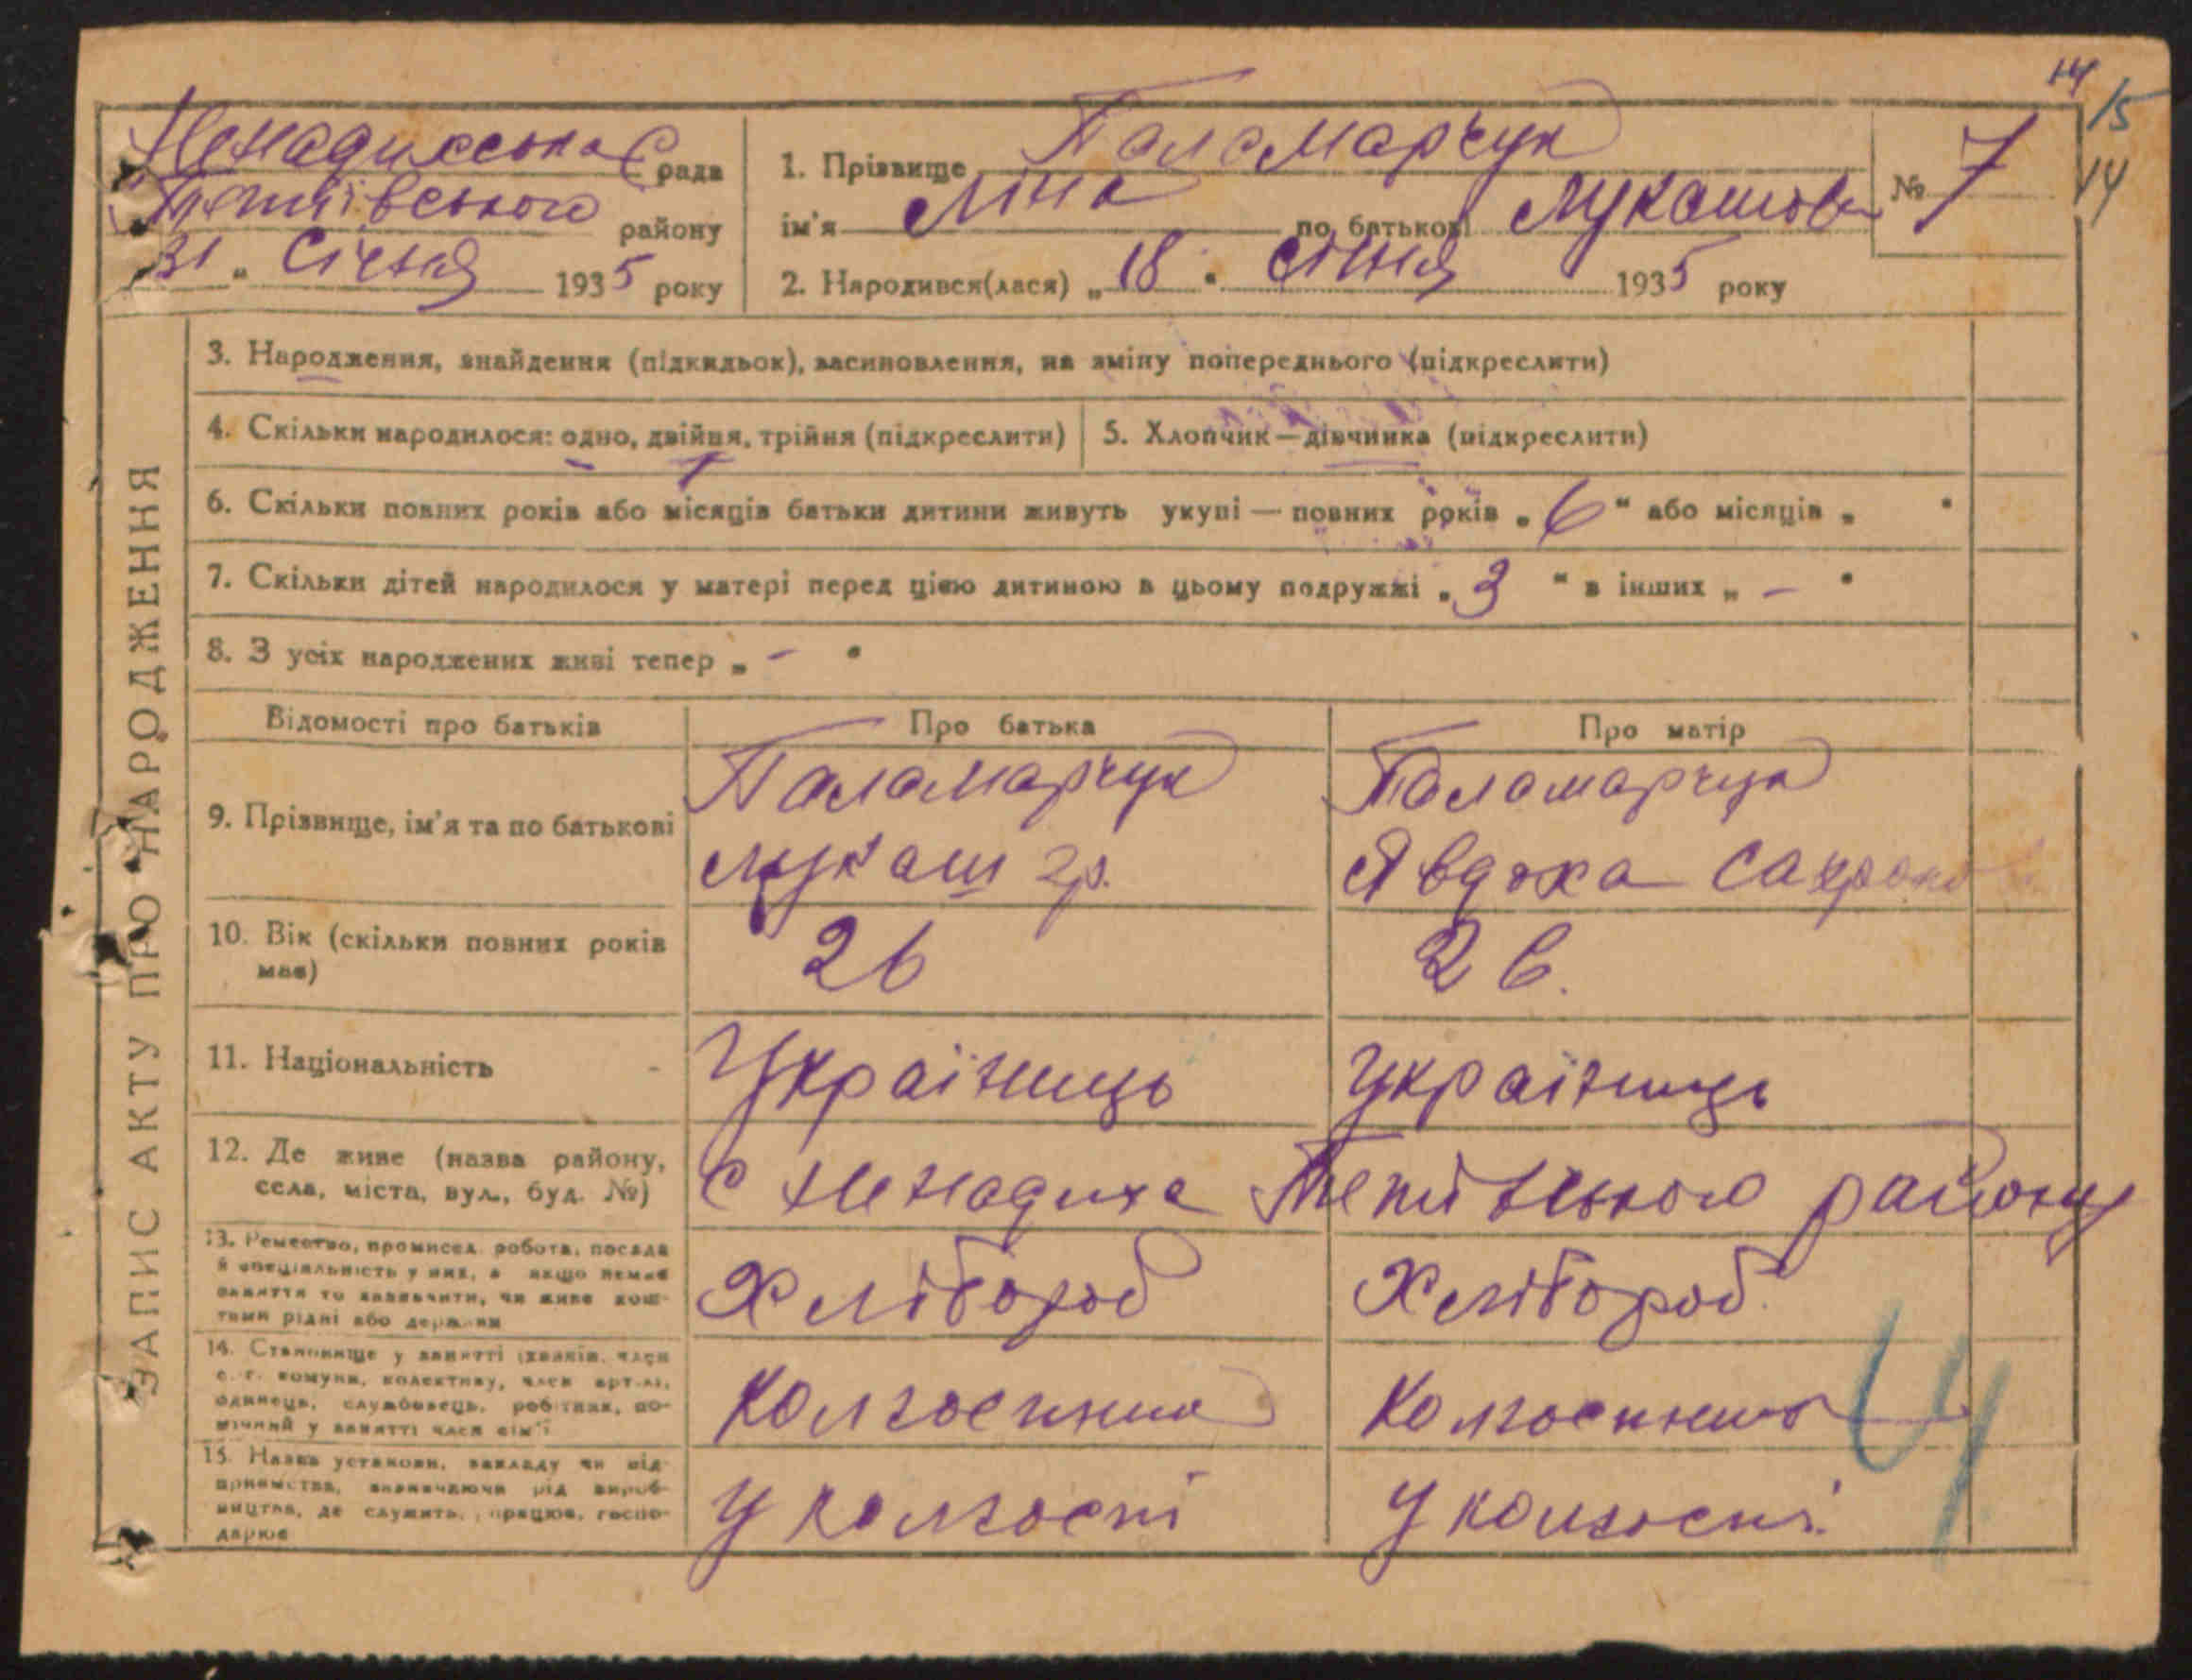 14
15
14
Ненадихська С рада
Тетіївського району
31 „ Січня 1935 року
1. Прізвище Паламарчук
ім'я Ліна по батькові Лукашова
2. Народився(лася) „ 18 " січня 1935 року
№ 7
ЗАПИС АКТУ ПРО НАРОДЖЕННЯ
3. Народження, знайдення (підкидьок), засиновлення, на зміну попереднього (підкреслити)
4. Скільки народилося: одно, двійня, трійня (підкреслити)
5. Хлопчик—дівчинка (підкреслити)
6. Скільки повних років або місяців батьки дитини живуть укупі — повних років „ 6 " або місяців „ "
7. Скільки дітей народилося у матері перед цією дитиною в цьому подружжі „ 3 " в інших „ - "
8. З усіх народжених живі тепер „ - "
Відомості про батьків Про батька Про матір
9. Прізвище, ім'я та по батькові
Паламарчук
Лукаш гр.
Паламарчук
Явдоха
10. Вік (скільки повних років
має)
26
26.
11. Національність
Українець
Українець
12. Де живе (назва району,
села, міста, вул., буд. №)
с Ненадиха Тетіївського району
13. Ремество, промисел, робота, посада
й спеціальність у них, а якщо немає
заняття то зазначити, чи живе кош-
тами рідні або держави
Хлібороб
Хлібороб
14. Становище у занятті (хазяїн, член
с.-г. комуни, колективу, член артілі,
одинець, службовець, робітник, по-
мічний у занятті член сім'ї
Колгоспник
Колгоспник
15. Назва установи, закладу чи під-
приємства, зазначаючи рід вироб-
ництва, де служить, працює, госпо-
дарює
У колгоспі
У колгоспі